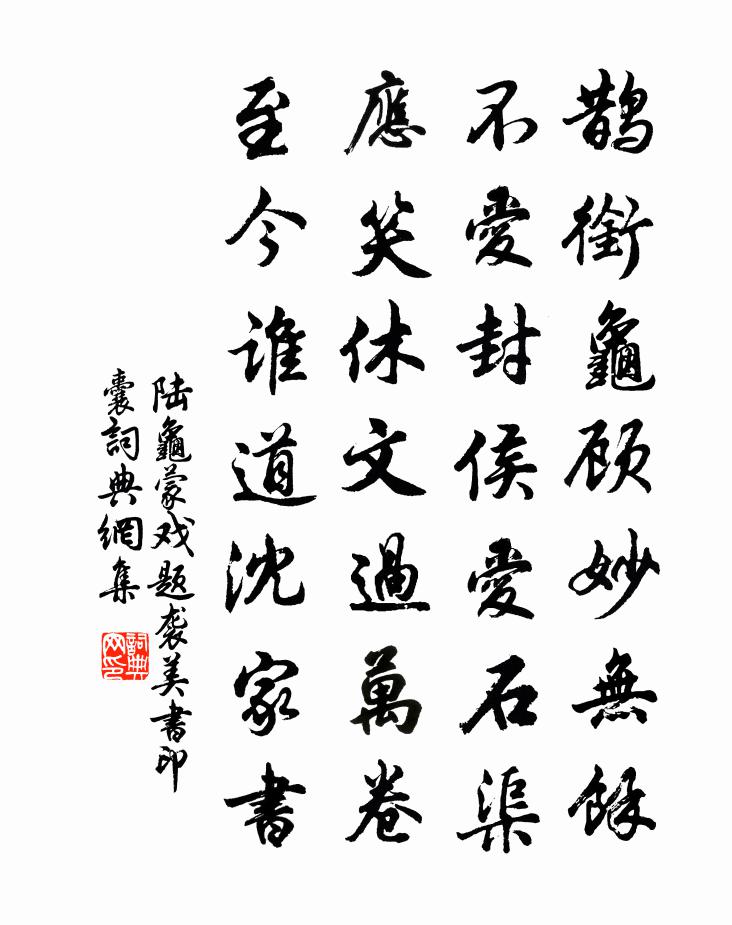 鹊銜龜顾妙無餘
不愛封侯愛石渠
應笑休文過萬卷
至今誰道沈家書
陆龜蒙戏题袭美書印
囊詞典網集
詞典网印